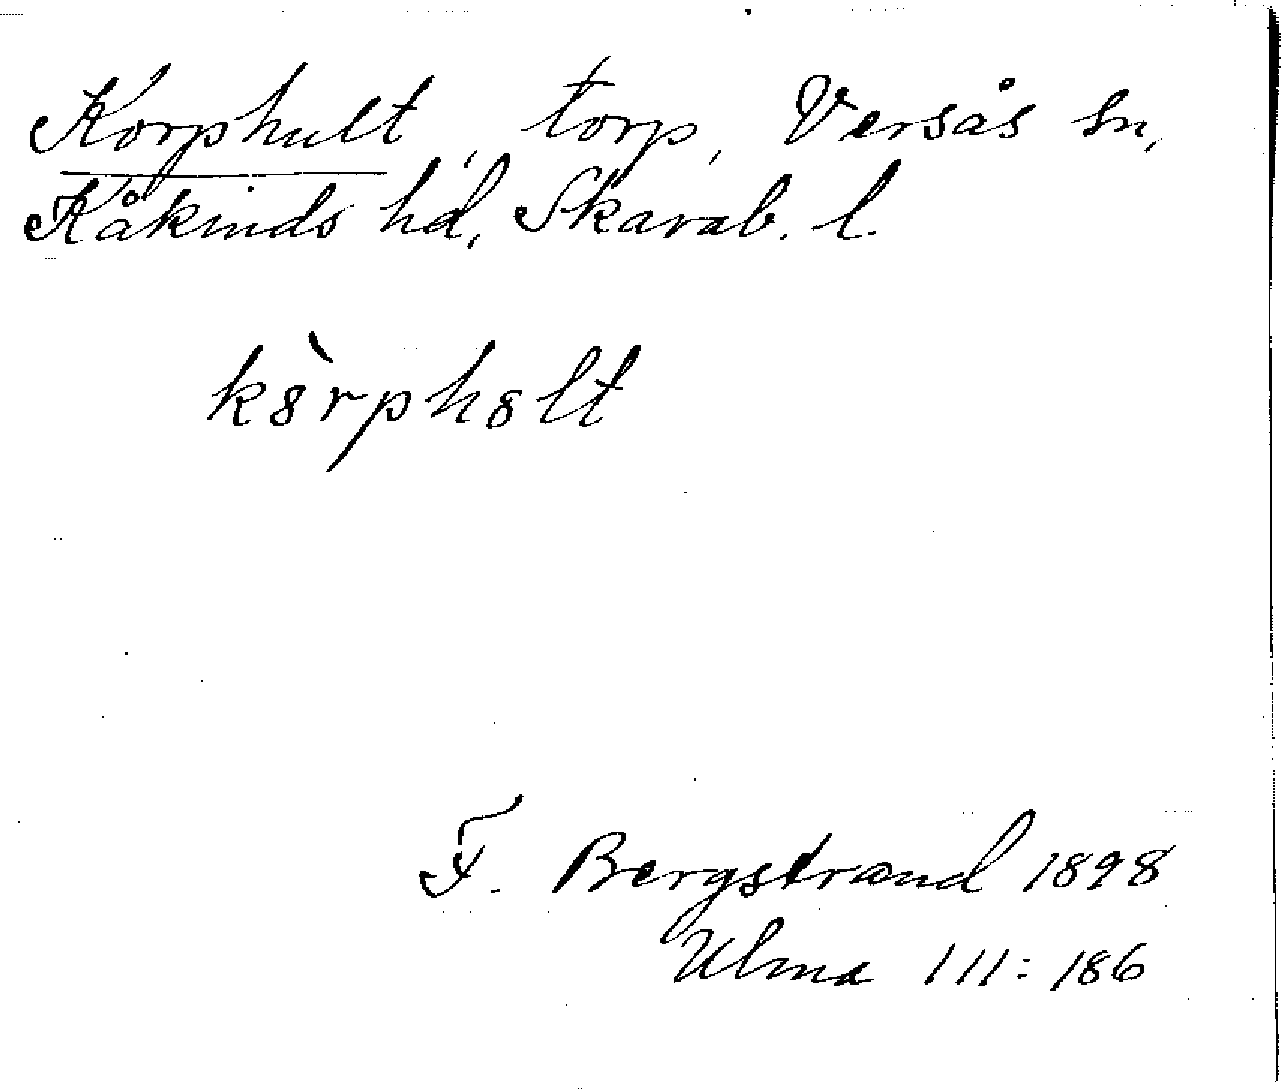 Korphult, torp, Versås sn,
Kåkinds hd, Skarab. l.
kȣ̀rphȣlt
F. Bergstrand 1898
Ulma 111:186